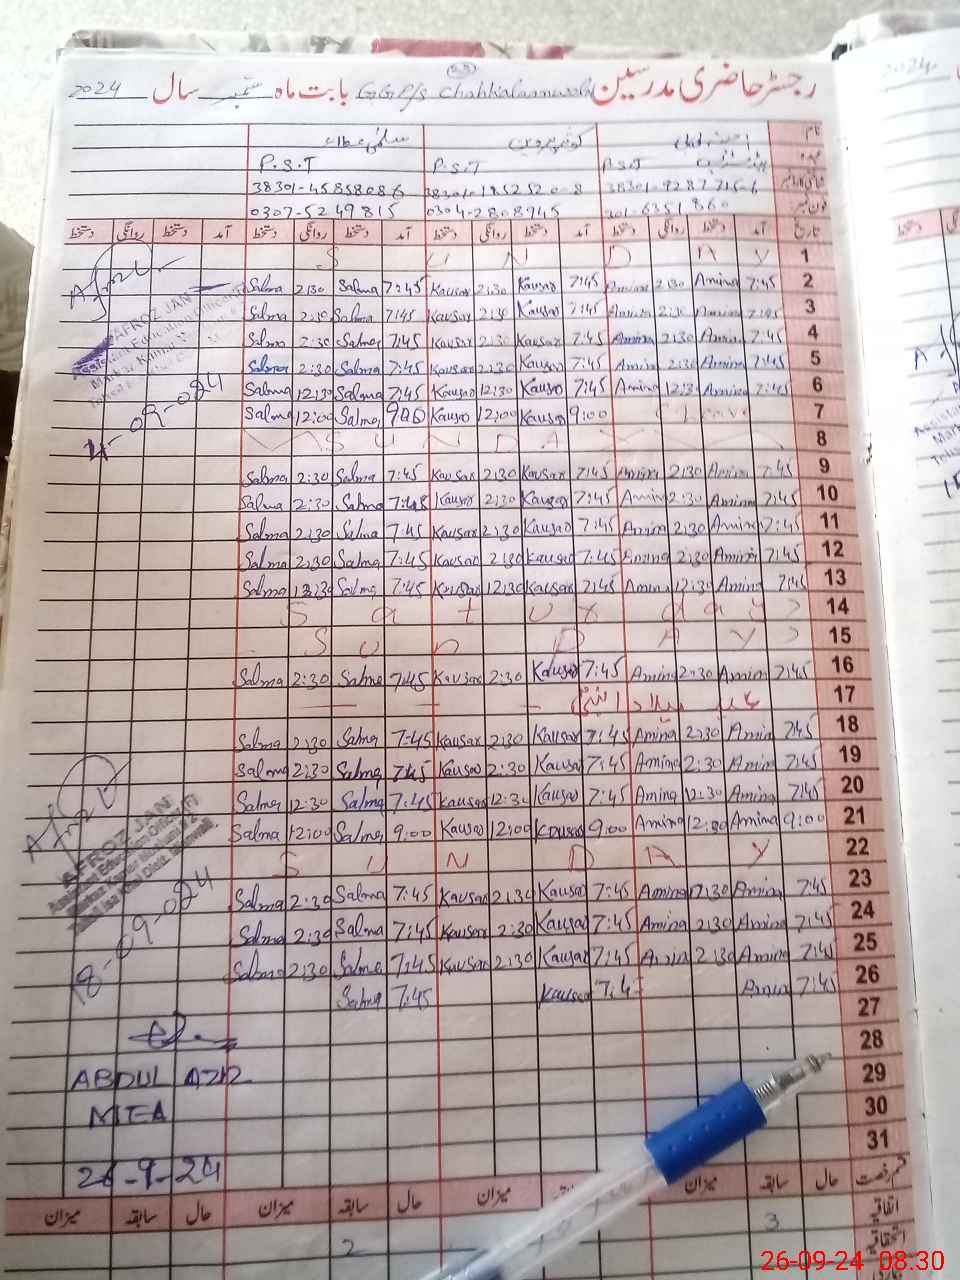 رجسٹر حاضری مدرسین GGP/s بابت ماہ ستمبر سال 2024
نام
عہدہ P.S.T P.S.T P.S.T
38301-45858086
فون نمبر 0304-2808945 0307-5249815
تاریخ آمد دستخط روانگی دستخط آمد دستخط روانگی دستخط آمد دستخط روانگی دستخط آمد دستخط روانگی دستخط
S U N D A Y 1
Salma 2:30 Salma 7:45 Kausar 2:30 Kausar 7:45 Amina 2:30 Amina 7:45 2
Salma 2:30 Salma 7:45 Kausar 2:30 Kausar 7:45 Amina 2:30 Amina 7:45 3
Salma 2:30 Salma 7:45 Kausar 2:30 Kausar 7:45 Amina 2:30 Amina 7:45 4
Salma 2:30 Salma 7:45 Kausar 2:30 Kausar 7:45 Amina 2:30 Amina 7:45 5
Salma 12:30 Salma 7:45 Kausar 12:30 Kausar 7:45 Amina 12:30 Amina 7:45 6
Salma 12:00 Salma 9:00 Kausar 12:00 Kausar 9:00 C Leave 7
S U N D A Y 8
Salma 2:30 Salma 7:45 Kausar 2:30 Kausar 7:45 Amina 2:30 Amina 7:45 9
Salma 2:30 Salma 7:45 Kausar 2:30 Kausar 7:45 Amina 2:30 Amina 7:45 10
Salma 2:30 Salma 7:45 Kausar 2:30 Kausar 7:45 Amina 2:30 Amina 7:45 11
Salma 2:30 Salma 7:45 Kausar 2:30 Kausar 7:45 Amina 2:30 Amina 7:45 12
Salma 12:30 Salma 7:45 Kausar 12:30 Kausar 7:45 Amina 12:30 Amina 7:45 13
S a t u r d a y 14
S u n D A Y 15
Salma 2:30 Salma 7:45 Kausar 2:30 Kausar 7:45 Amina 2:30 Amina 7:45 16
عید میلاد النبی 17
Salma 2:30 Salma 7:45 Kausar 2:30 Kausar 7:45 Amina 2:30 Amina 7:45 18
Salma 2:30 Salma 7:45 Kausar 2:30 Kausar 7:45 Amina 2:30 Amina 7:45 19
Salma 12:30 Salma 7:45 Kausar 12:30 Kausar 7:45 Amina 12:30 Amina 7:45 20
Salma 12:00 Salma 9:00 Kausar 12:00 Kausar 9:00 Amina 12:00 Amina 9:00 21
S U N D A Y 22
Salma 2:30 Salma 7:45 Kausar 2:30 Kausar 7:45 Amina 2:30 Amina 7:45 23
Salma 2:30 Salma 7:45 Kausar 2:30 Kausar 7:45 Amina 2:30 Amina 7:45 24
Salma 2:30 Salma 7:45 Kausar 2:30 Kausar 7:45 Amina 2:30 Amina 7:45 25
Salma 7:45 Kausar 7:45 Amina 7:45 26
27
28
29
30
31
AFROZ JAN
Assistant Education Officer
-09-024
AFROZ JAN
Assistant Education Officer
18-09-024
ABDUL AZIZ
MEA
26-9-24
قسم رخصت حال سابقہ میزان میزان حال سابقہ میزان حال سابقہ میزان
اتفاقیہ
استحقاقیہ
3
2
2024
دستخط
26-09-24 08:30